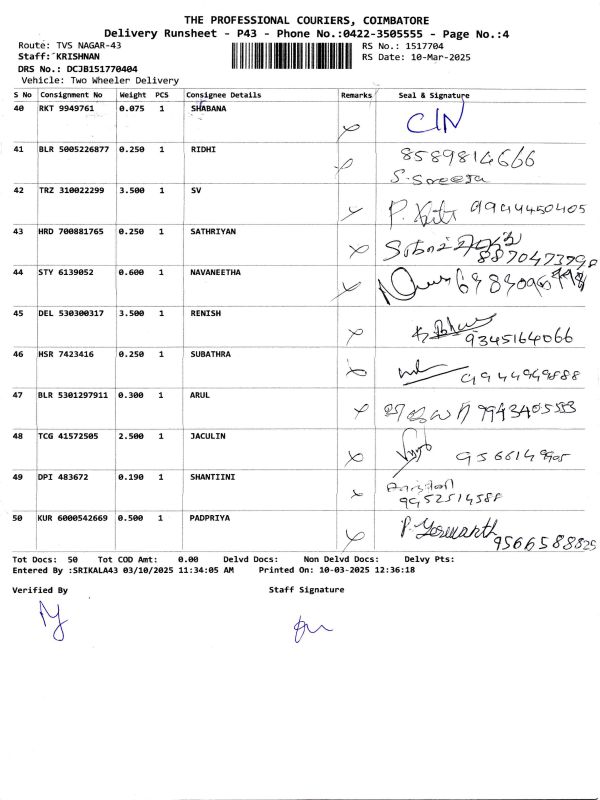 THE PROFESSIONAL COURIERS, COIMBATORE
Delivery Runsheet - P43 - Phone No.:0422-3505555 - Page No.:4
Route: TVS NAGAR-43
RS No.: 1517704
Staff: KRISHNAN
RS Date: 10-Mar-2025
DRS No.: DCJB151770404
Vehicle: Two Wheeler Delivery
S No Consignment No Weight PCS Consignee Details Remarks Seal & Signature
40 RKT 9949761 0.075 1 SHABANA
41 BLR 5005226877 0.250 1 RIDHI 8589814666
S. Sreeja
42 TRZ 310022299 3.500 1 SV 9944450405
43 HRD 700881765 0.250 1 SATHRIYAN
8870473798
44 STY 6139052 0.600 1 NAVANEETHA
45 DEL 530300317 3.500 1 RENISH 9345164066
46 HSR 7423416 0.250 1 SUBATHRA 9944949888
47 BLR 5301297911 0.300 1 ARUL
48 TCG 41572505 2.500 1 JACULIN
49 DPI 483672 0.190 1 SHANTIINI
9952514588
50 KUR 6000542669 0.500 1 PADPRIYA P. Yaswanth
9566588825
Tot Docs: 50 Tot COD Amt: 0.00 Delvd Docs: Non Delvd Docs: Delvy Pts:
Entered By :SRIKALA43 03/10/2025 11:34:05 AM Printed On: 10-03-2025 12:36:18
Verified By Staff Signature